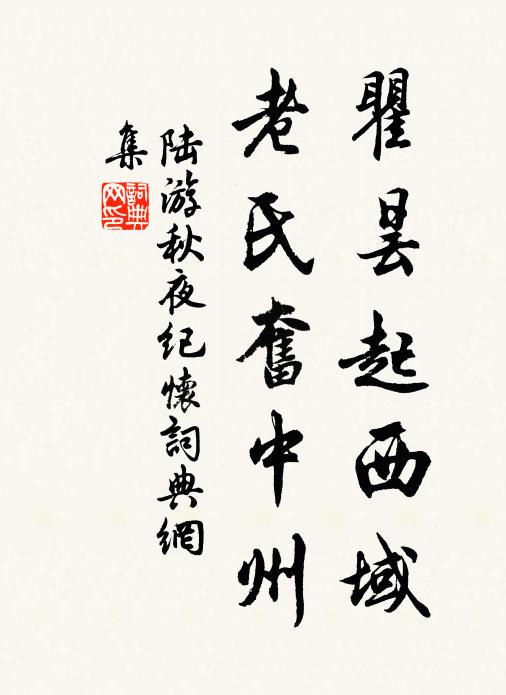 瞿昙起西域
老氏奮中州
陆游秋夜纪懷詞典網
集
詞典
网印